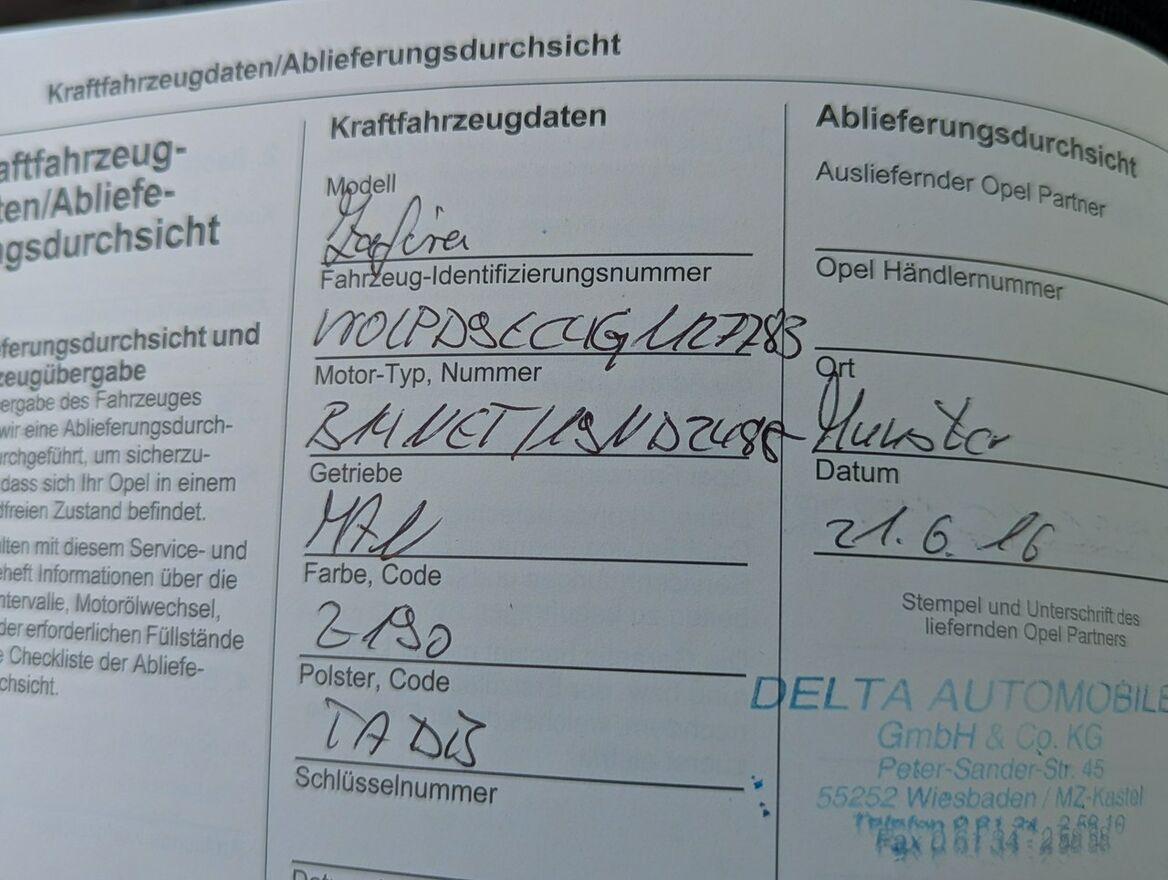 Kraftfahrzeugdaten/Ablieferungsdurchsicht
aftfahrzeug-
ten/Abliefe-
ngsdurchsicht
ferungsdurchsicht und
zeugübergabe
ergabe des Fahrzeuges
wir eine Ablieferungsdurch-
urchgeführt, um sicherzu-
dass sich Ihr Opel in einem
dfreien Zustand befindet.
lten mit diesem Service- und
eheft Informationen über die
ntervalle, Motorölwechsel,
der erforderlichen Füllstände
e Checkliste der Abliefe-
chsicht.
Kraftfahrzeugdaten
Modell
Zafira
Fahrzeug-Identifizierungsnummer
Motor-Typ, Nummer
Getriebe
MAN
Farbe, Code
Z190
Polster, Code
Schlüsselnummer
Ablieferungsdurchsicht
Ausliefernder Opel Partner
Opel Händlernummer
Ort
Datum
21.6.16
Stempel und Unterschrift des
liefernden Opel Partners
DELTA AUTOMOBILE
GmbH & Co. KG
Peter-Sander-Str. 45
55252 Wiesbaden / MZ-Kastel
Telefon
Fax